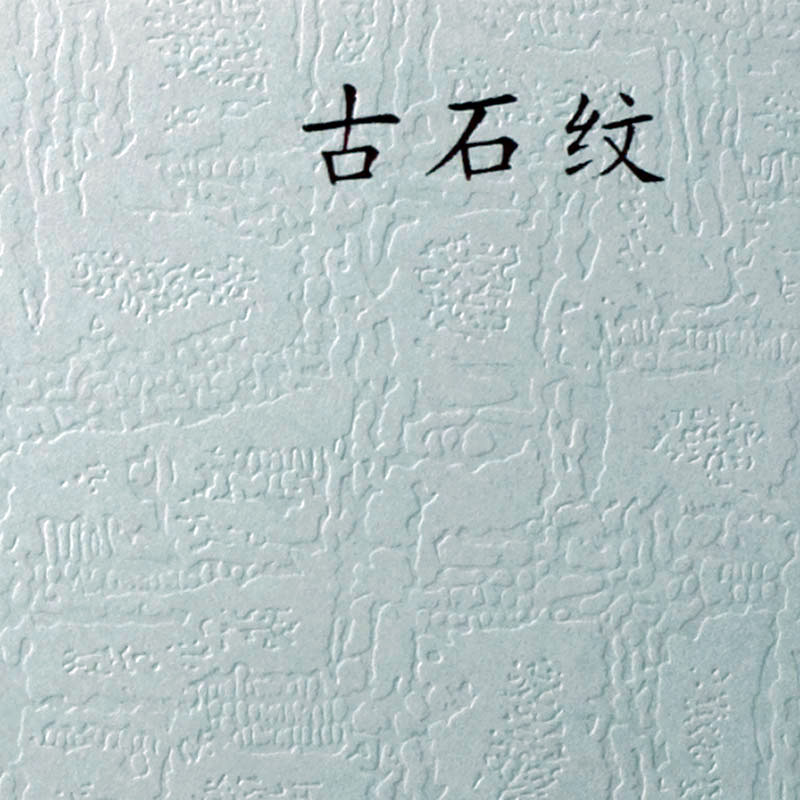 古石纹